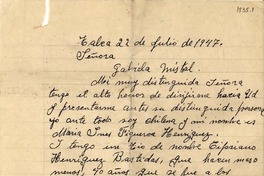 1935.1
Talca 22 de Julio de 1947.
Señora
Gabriela Mistral.
Mi muy distinguida Señora
tengo el alto honor de dirijirme hacia Ud
y presentarme antes su distinguida persona
yo ante todo soy chilena y mi nombre es
Maria Ines Figueroa Henriquez.
I tengo un tio de nombre Cipriano
Henriquez Bastidas, que hacen maso
menos, 40 años que se fue a los